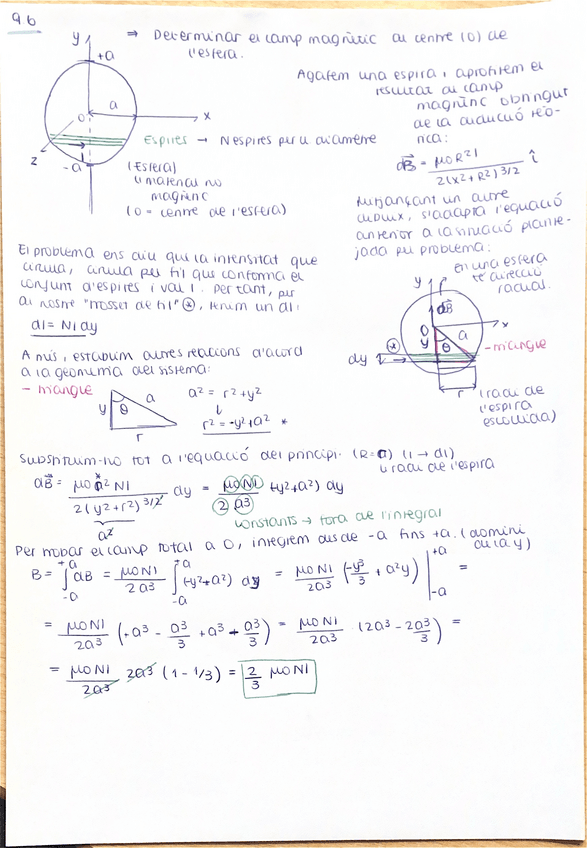 9.6
⇒ Determinar el camp magnètic al centre (O) de
l'esfera.
y
+a
a
O
x
z
-a
I
Espires → N espires per u diàmetre
(Esfera)
u material no
magnètic
(O = centre de l'esfera)
Agafem una espira i aprofitem el
resultat del camp
magnètic obtingut
de la deducció teò-
rica:
dB⃗ = μ0R²I / 2(x²+R²)^3/2 î
s'adapta l'equació
anterior a la situació plante-
jada pel problema:
en una esfera
té direcció
radial.
y
r
dB⃗
O
x
y
θ
a
- triangle
dy
*
r
(radi de
l'espira
escollida)
El problema ens diu que la intensitat que
circula, circula pel fil que conforma el
conjunt d'espires i val I. Per tant, per
al nostre "trosset de fil" *, tenim un dI:
dI = NI dy
A més, establim altres relacions d'acord
a la geometria del sistema:
- triangle
y
θ
a
r
a² = r² + y²
↓
r² = -y² + a² *
Substituïm-ho tot a l'equació del principi. (R = r) (I → dI)
u radi de l'espira
dB⃗ = μ0 r² NI / 2(y²+r²)^3/2 dy = μ0NI / 2a³ (-y²+a²) dy
a²
constants → fora de l'integral
Per trobar el camp total a O, integrem des de -a fins +a. (domini
de la y)
B = ∫_-a^+a dB = μ0NI / 2a³ ∫_-a^+a (-y²+a²) dy = μ0NI / 2a³ (-y³/3 + a²y) |_-a^+a =
= μ0NI / 2a³ (+a³ - a³/3 + a³ - a³/3) = μ0NI / 2a³ (2a³ - 2a³/3) =
= μ0NI / 2a³ 2a³ (1 - 1/3) = 2/3 μ0NI